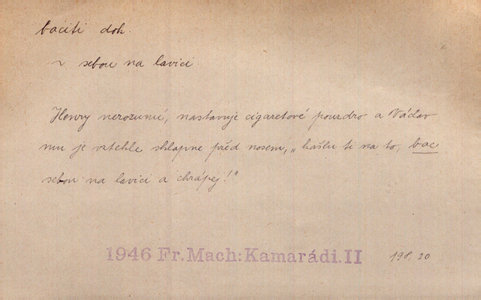 baciti dok.
~ sebou na lavici
Henry nerozumí, nastavuje cigaretové pouzdro a Václav
mu je vztekle sklapne před nosem, „kašlu ti na to, bac
sebou na lavici a chrápej!"
1946 Fr.Mach:Kamarádi.II
198, 20